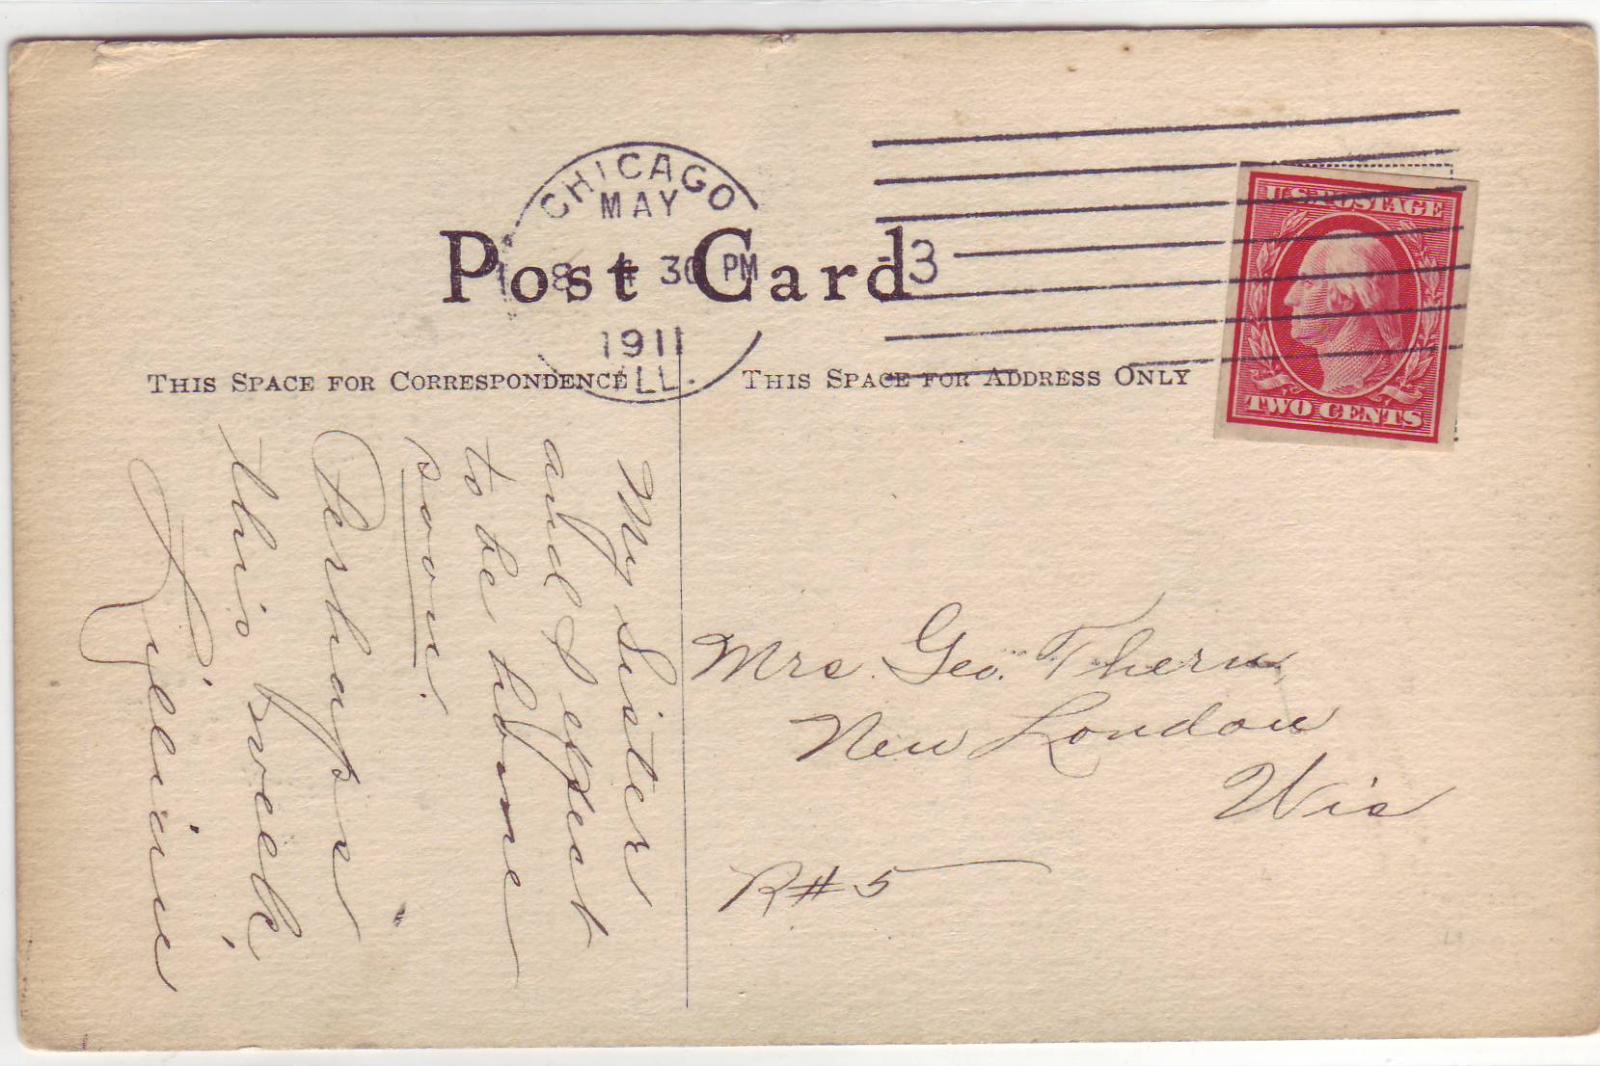 CHICAGO
MAY
8 4 30 PM
1911
ILL.
3
U.S. POSTAGE
TWO CENTS
Post Card
THIS SPACE FOR CORRESPONDENCE
THIS SPACE FOR ADDRESS ONLY
My Sister
and I expect
to be home
soon.
Perhaps
this week,
Lillian
Mrs. Geo. Thern,
New London
Wis
R#5